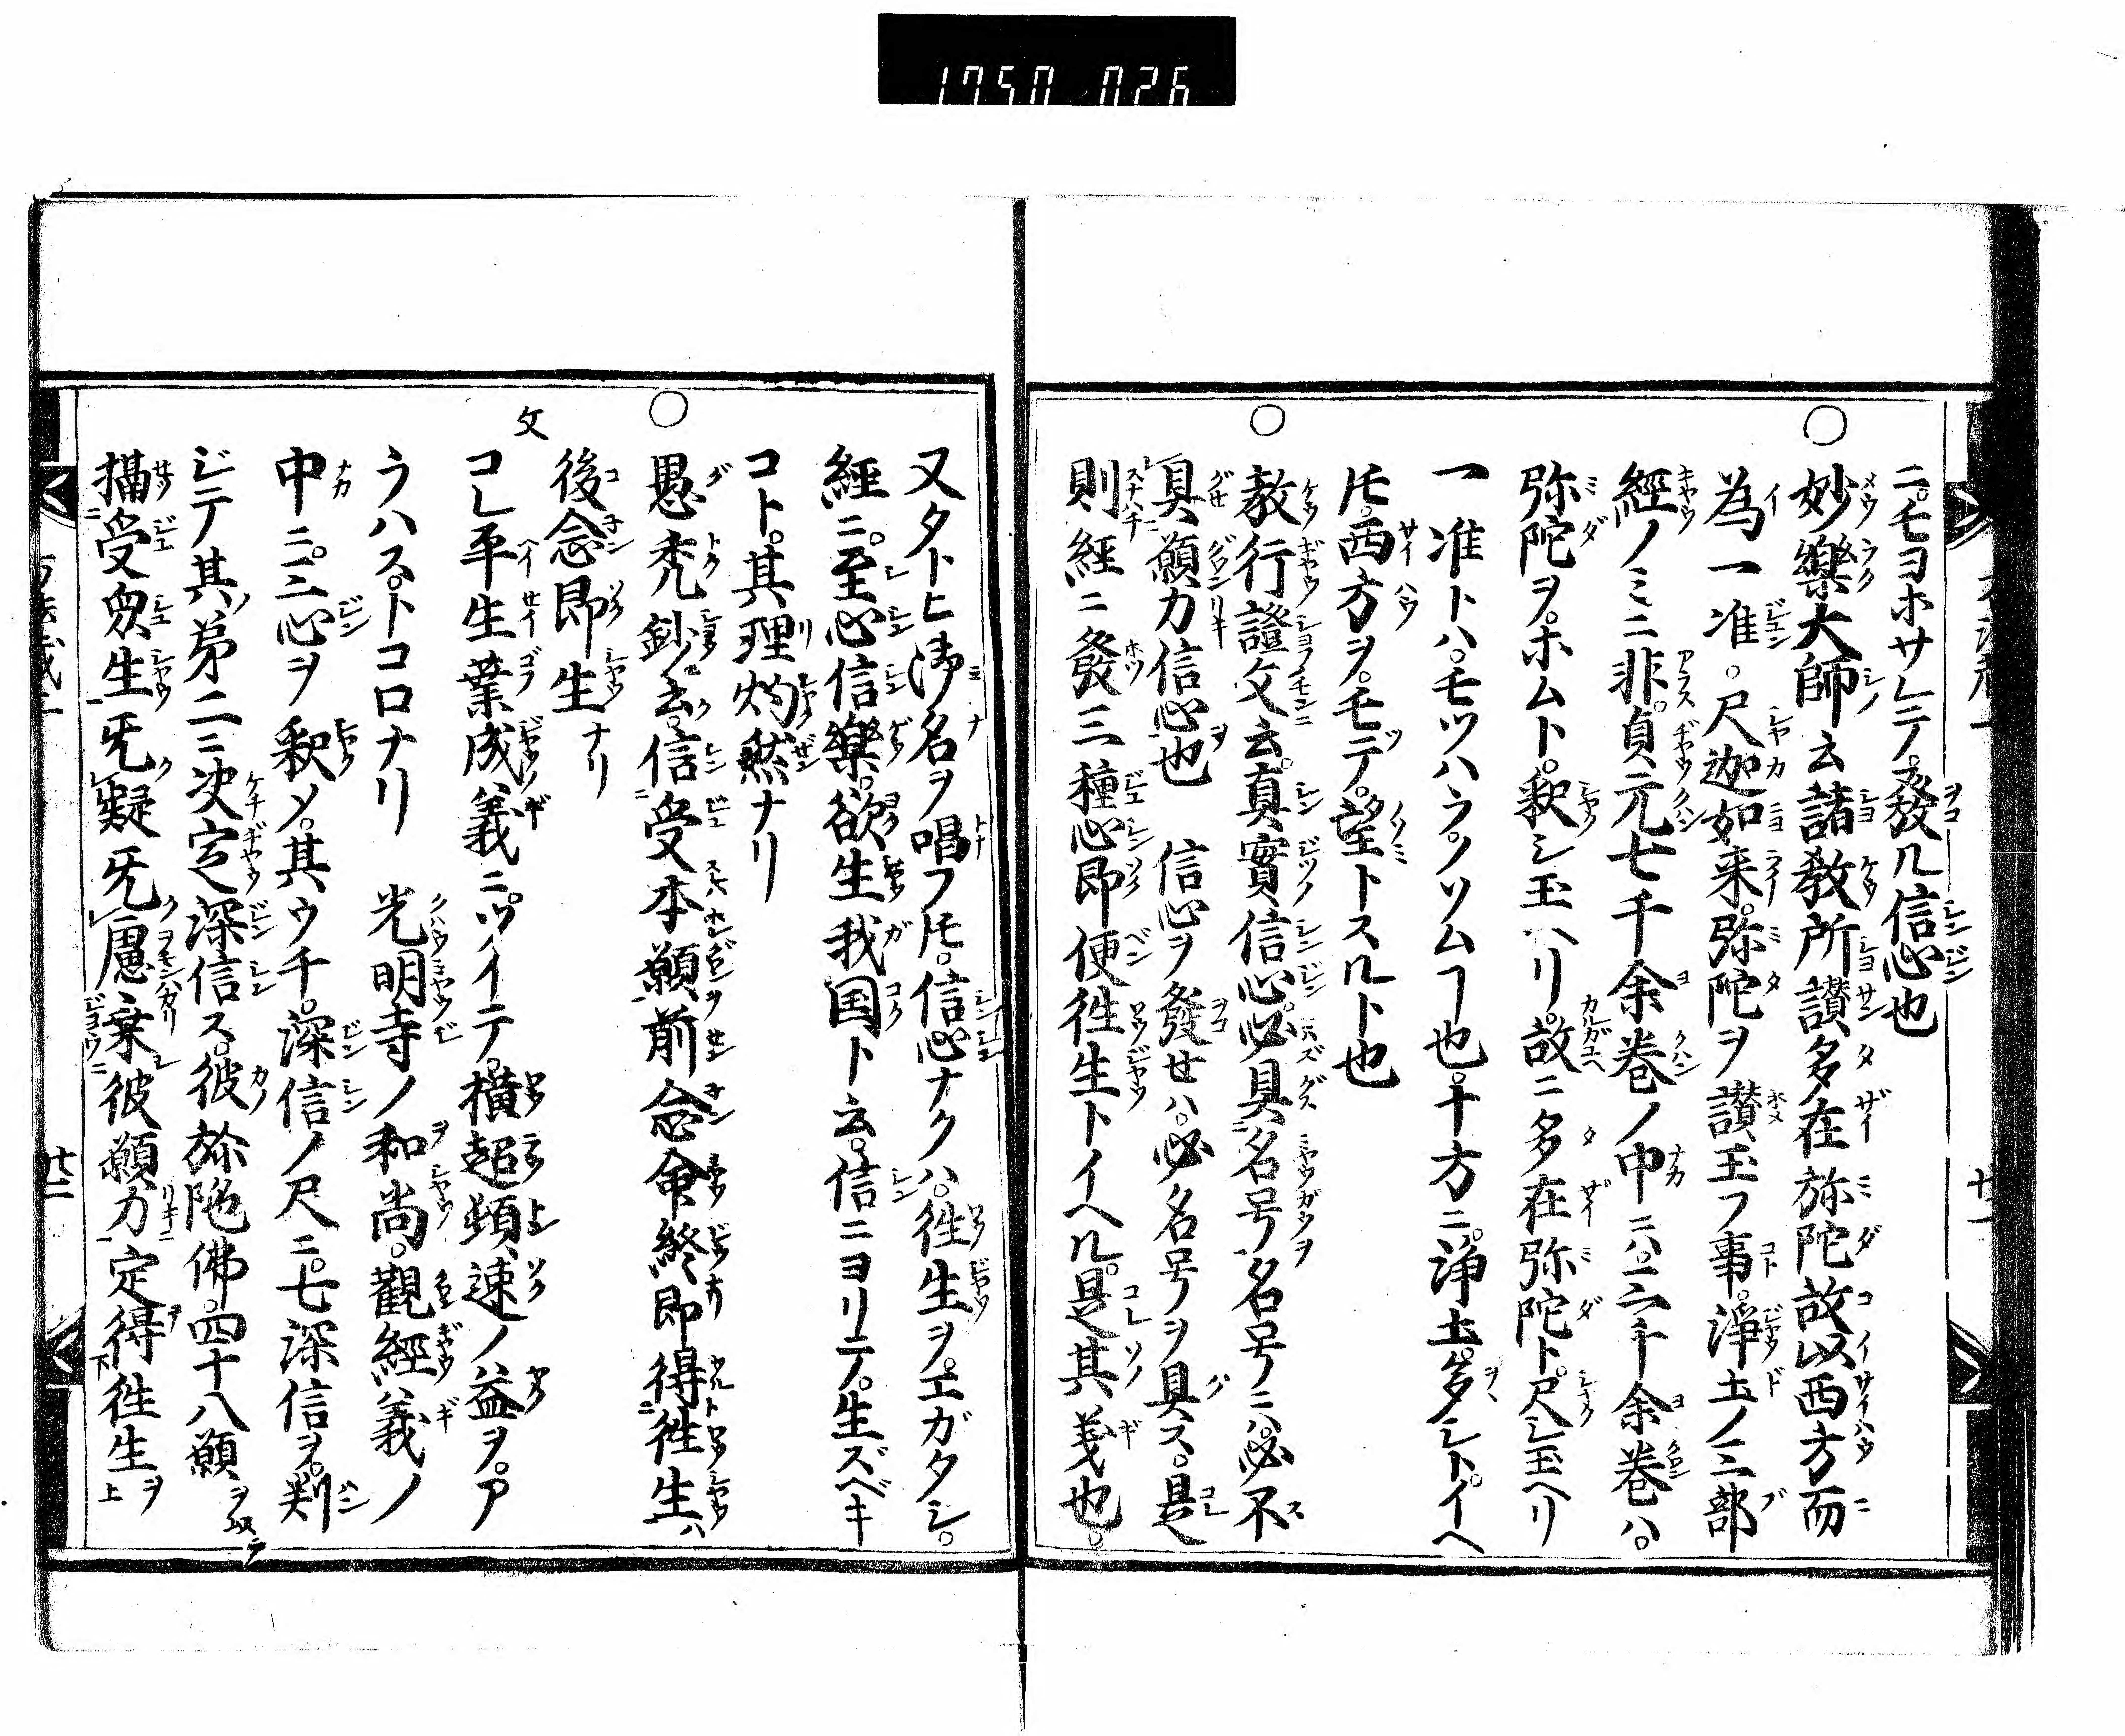 1750 026
ニ。モヨホサレテ。發ル信心也
○妙樂大師云諸教所讃多在弥陀故以西方而
為一准。尺迦如来。弥陀ヲ讃玉フ事。淨土ノ三部
經ノミニ非。貞元七千余巻ノ中ニハ。二千余巻ハ。
弥陀ヲ。ホムト。釈シ玉ヘリ。故ニ多在弥陀ト。尺シ玉ヘリ
一准トハ。モツハラ。ノソムヿ也。十方ニ。淨土。多シト。イヘ
𪜈。西方ヲ。モテ。望トスルト也
○教行證文云。真實信心必具名号名号ニハ必不
具願力信心也 信心ヲ發セハ。必名号ヲ具ス。是
則經ニ發三種心即便徃生トイヘル。是其義也。
又タトヒ御名ヲ唱フ𪜈。信心ナクハ。徃生ヲ。エガタシ。
經ニ。至心信樂。欲生我国ト云。信ニヨリテ。生ズベキ
コト。其理灼然ナリ
○愚禿鈔云。信受本願前念命終即得徃生ハ
後念即生ナリ
文 コレ平生業成義ニ。ツイテ。横超頓速ノ益ヲ。ア
ラハス。トコロナリ 光明寺ノ和尚。觀經義ノ
中ニ。三心ヲ釈メ。其ウチ。深信ノ尺ニ。七深信ヲ。判
ジテ其第二ニ決定深信ス。彼弥陀佛。四十八願ヲ以テ
攝受衆生旡疑旡慮乗彼願力定得徃生
廿一
廿二